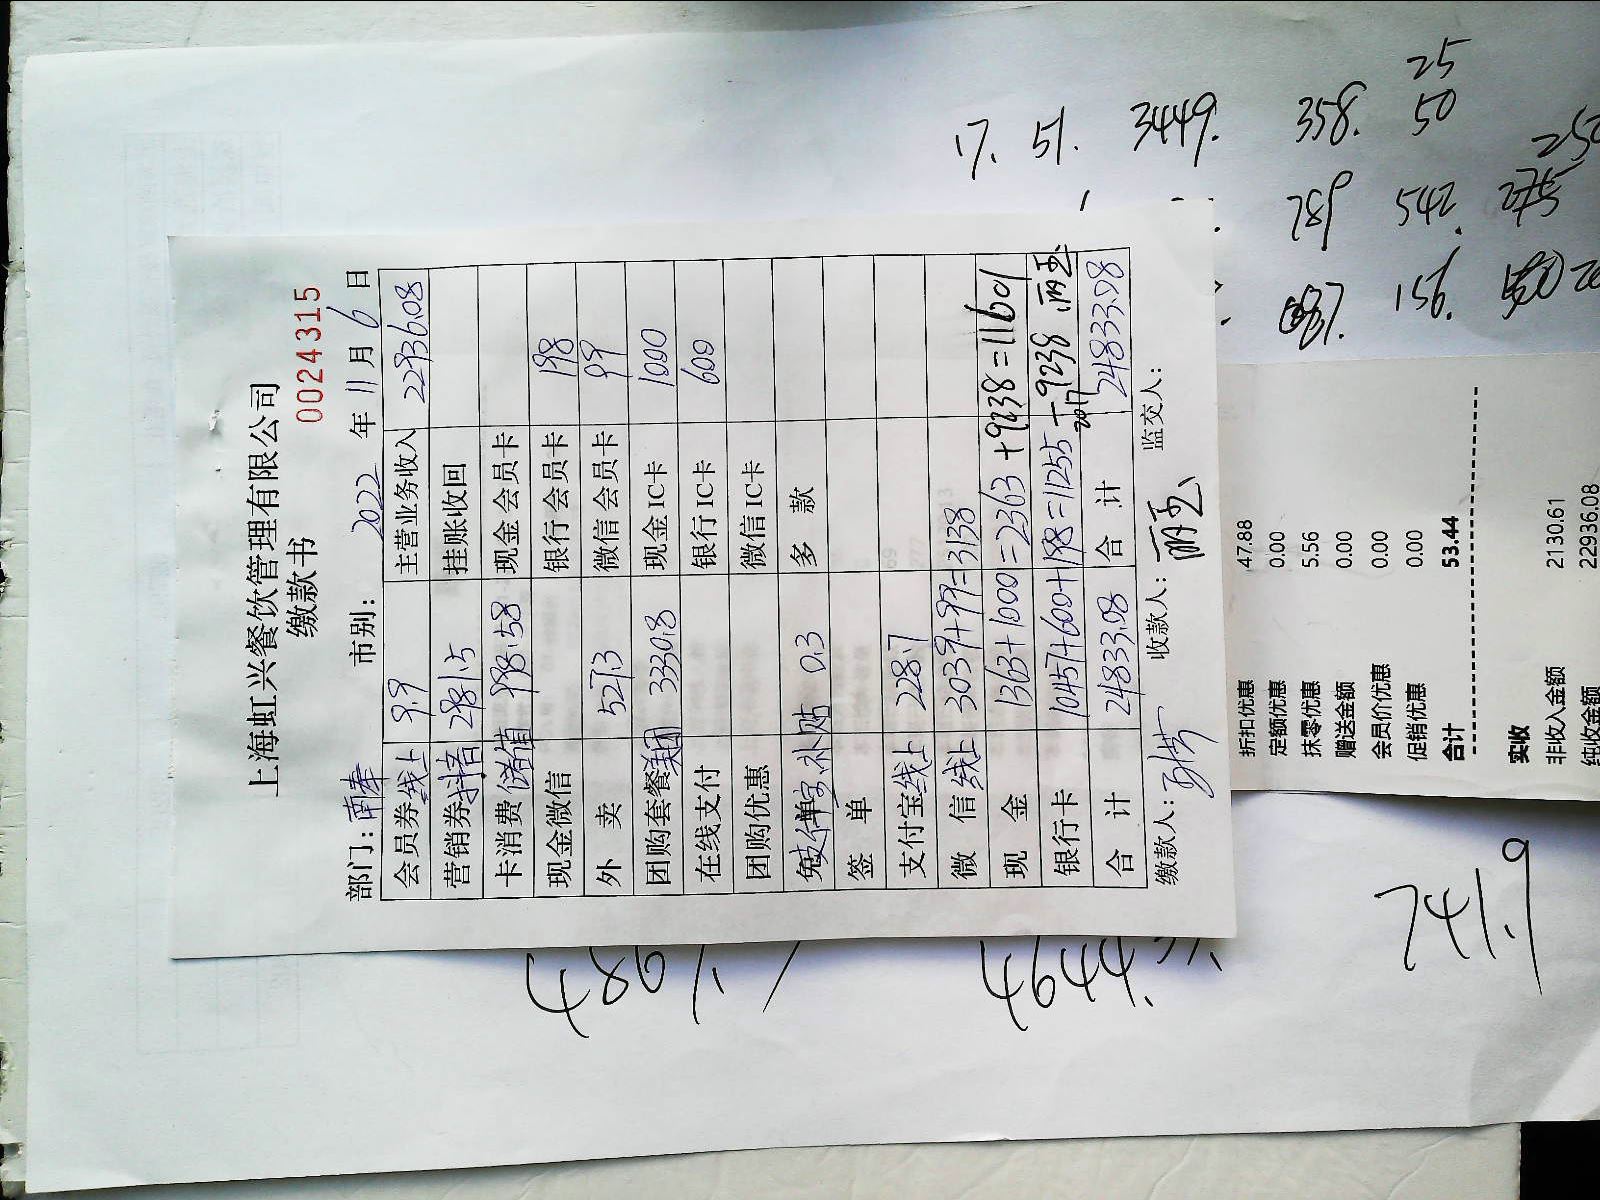 上海虹兴餐饮管理有限公司
缴款书 0024315
部门: 南奉 市别: 2022 年 11 月 6 日
会员券线上 9.9 主营业务收入 22936.08
营销券抖音 2981.5 挂账收回
卡消费储值 998.58 现金会员卡
现金微信 银行会员卡 198
外 卖 527.3 微信会员卡 99
团购套餐美团 3330.8 现金IC卡 1000
在线支付 银行IC卡 600
团购优惠 微信IC卡
补贴 0.3 多 款
签 单
支付宝线上 228.7
微 信线上 3039+99=3138
现 金 1363+1000=2363+9238=11601
银行卡 10457+600+198=11255-9238 丽玉
2017
合 计 24833.08 合 计 24833.08
缴款人: 收款人: 丽玉 监交人:
折扣优惠 47.88
定额优惠 0.00
抹零优惠 5.56
赠送金额 0.00
会员价优惠 0.00
促销优惠 0.00
合计 53.44
实收
非收入金额 21130.61
纯收金额 22936.08
17. 51. 3449. 358. 50
25
789 542
156.
741.9